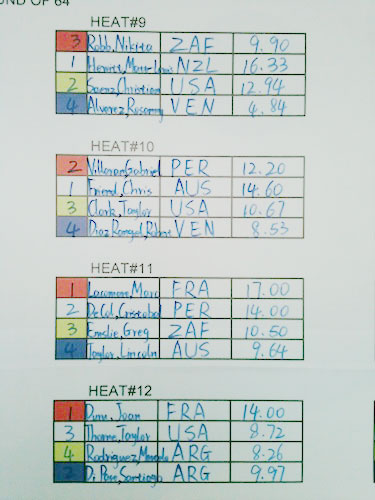 ROUND OF 64
HEAT#9
3 Robb, Nikita ZAF 9.90
1 NZL 16.33
2 Saenz, Christian USA 12.94
4 Alvarez, Rosemy VEN 4.84
HEAT#10
2 Villaran, Gabriel PER 12.20
1 Friend, Chris AUS 14.60
3 Clark, Taylor USA 10.67
4 Diaz Rangel, Robert VEN 8.53
HEAT#11
1 FRA 17.00
2 De Col, Cristobal PER 14.00
3 Emslie, Greg ZAF 10.50
4 Taylor, Lincoln AUS 9.64
HEAT#12
1 Duru, Joan FRA 14.00
3 Thorne, Taylor USA 8.72
4 Rodriguez, ARG 8.26
2 Di Pace, Santiago ARG 9.97